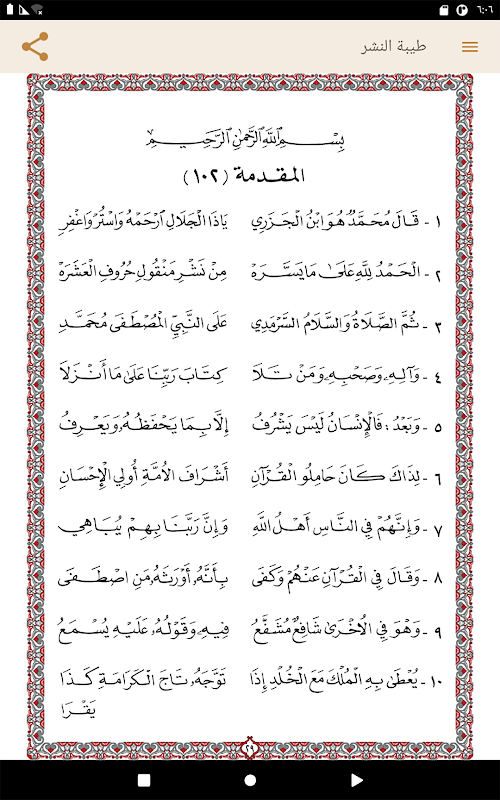 ٦:٠٦
طيبة النشر
بِسْمِ اللَّهِ الرَّحْمَٰنِ الرَّحِيمِ
المقدمة (١٠٢)
١ - قَالَ مُحَمَّدٌ هُوَ ابْنُ الْجَزَرِي يَاذَا الْجَلَالِ ارْحَمْهُ وَاسْتُرْ وَاغْفِرِ
٢ - الْحَمْدُ لِلَّهِ عَلَىٰ مَا يَسَّرَهْ مِنْ نَشْرِ مَنْقُولِ حُرُوفِ الْعَشَرَهْ
٣ - ثُمَّ الصَّلَاةُ وَالسَّلَامُ السَّرْمَدِي عَلَى النَّبِيِّ الْمُصْطَفَى مُحَمَّدِ
٤ - وَآلِهِ وَصَحْبِهِ وَمَنْ تَلَا كِتَابَ رَبِّنَا عَلَىٰ مَا أَنْزَلَا
٥ - وَبَعْدُ: فَالْإِنْسَانُ لَيْسَ يَشْرُفُ إِلَّا بِمَا يَحْفَظُهُ وَيَعْرِفُ
٦ - لِذَاكَ كَانَ حَامِلُو الْقُرْآنِ أَشْرَافَ الْأُمَّةِ أُولِي الْإِحْسَانِ
٧ - وَإِنَّهُمْ فِي النَّاسِ أَهْلُ اللَّهِ وَإِنَّ رَبَّنَا بِهِمْ يُبَاهِي
٨ - وَقَالَ فِي الْقُرْآنِ عَنْهُمْ وَكَفَى بِأَنَّهُ أَوْرَثَهُ مَنِ اصْطَفَى
٩ - وَهْوَ فِي الْأُخْرَىٰ شَافِعٌ مُشَفَّعُ فِيهِ وَقَوْلُهُ عَلَيْهِ يُسْمَعُ
١٠ - يُعْطَىٰ بِهِ الْمُلْكَ مَعَ الْخُلْدِ إِذَا تَوَّجَهُ تَاجَ الْكَرَامَةِ كَذَا
يَقْرَا
٢٩